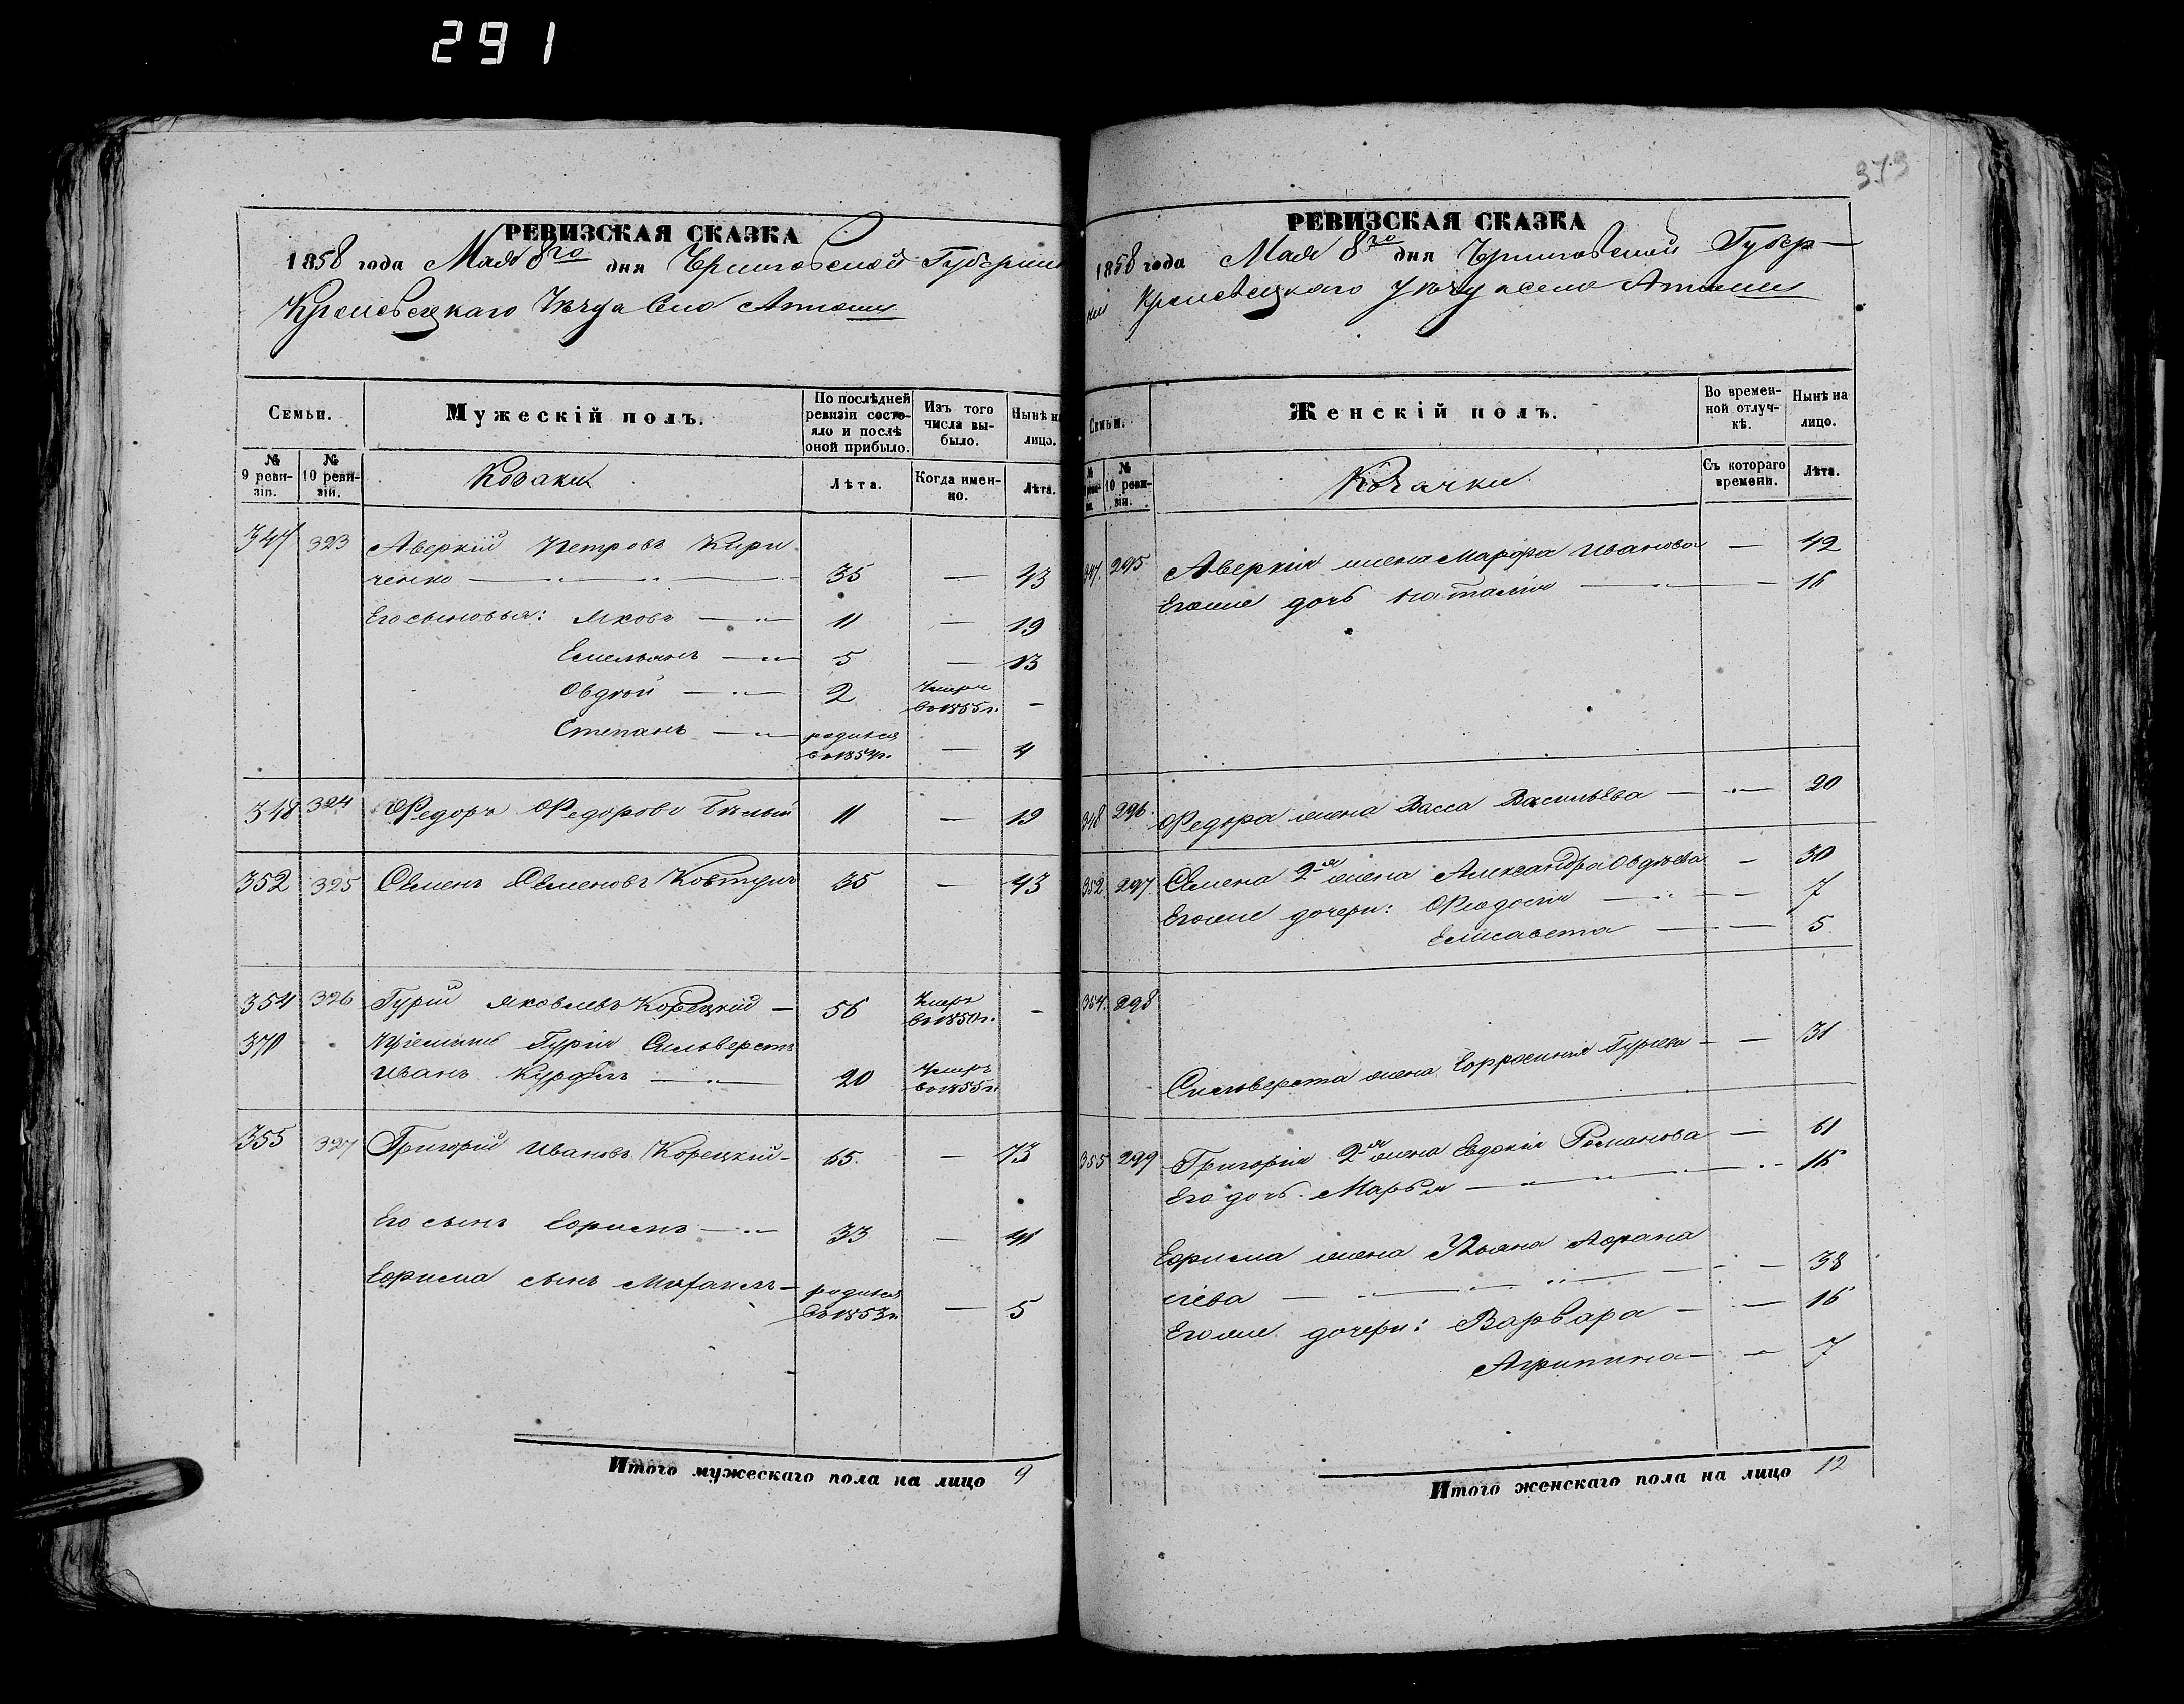 291
РЕВИЗСКАЯ СКАЗКА
1858 года Мая 8го дня Черниговской Губернии
Кролевецкаго Уѣзда Село Атюши
Семьи.
Мужескій полъ.
По послѣдней ревизіи состояло и послѣ оной прибыло.
Изъ того числа выбыло.
Нынѣ на лицо.
№ 9 ревизіи.
№ 10 ревизіи.
Козаки
Лѣта.
Когда именно.
Лѣта.
347 323 Аверкій Петровъ Кири
ченко 35 — 43
Его сыновья: Яковъ 11 — 19
Емельянъ 5 — 13
Овдѣй 2 Умеръ въ 1855 г. —
Степанъ родился въ 1854 г. — 4
348 324 Ѳедоръ Ѳедоровъ Бѣлый 11 — 19
352 325 Семенъ Семеновъ Ковтунъ 35 — 43
354 326 Гурій Яковлевъ Корецкій — 56 Умеръ въ 1850 г. —
370 Пріемышъ Гурія Сильверстъ
Ивановъ 20 Умеръ въ 1855 г.
355 327 Григорій Ивановъ Корецкій — 65 — 73
Его сынъ Ефимъ 33 — 41
Ефима сынъ Михаилъ — родился въ 1853 г. — 5
Итого мужескаго пола на лицо 9
373
РЕВИЗСКАЯ СКАЗКА
1858 года Мая 8го дня Черниговской Губер—
ніи Кролевецкаго Уѣзда село Атюши
Семьи.
Женскій полъ.
Во временной отлучкѣ.
Нынѣ на лицо.
№ 10 ревизіи.
Козачки
Съ котораго времени.
Лѣта.
347. 295 Аверкія жена Марфа Иванова — 42
Егоже дочь Наталія — 16
348 296. Ѳедора жена Васса Васильева — 20
352 297. Семена 2я жена Александра Овдѣева — 30
Егоже дочери: Ѳеодосія — 7
Елисавета — 5
354. 298
Сильверста жена Ефросинія Гурiева — 31
355 299 Григорія 2я жена Евдокія Романова — 61
Его дочь Марья — 16
Ефима жена Ульяна Афана
сіева — 38
Егоже дочери: Варвара — 16
Агрипина — 7
Итого женскаго пола на лицо 12